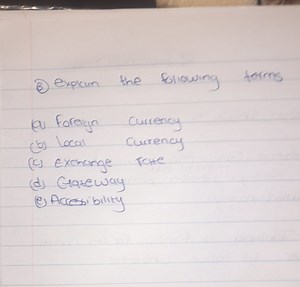 ⑥ explain the following terms
(a) Foreign Currency
(b) local Currency
(c) Exchange rate
(d) Gateway
(e) Accessibility